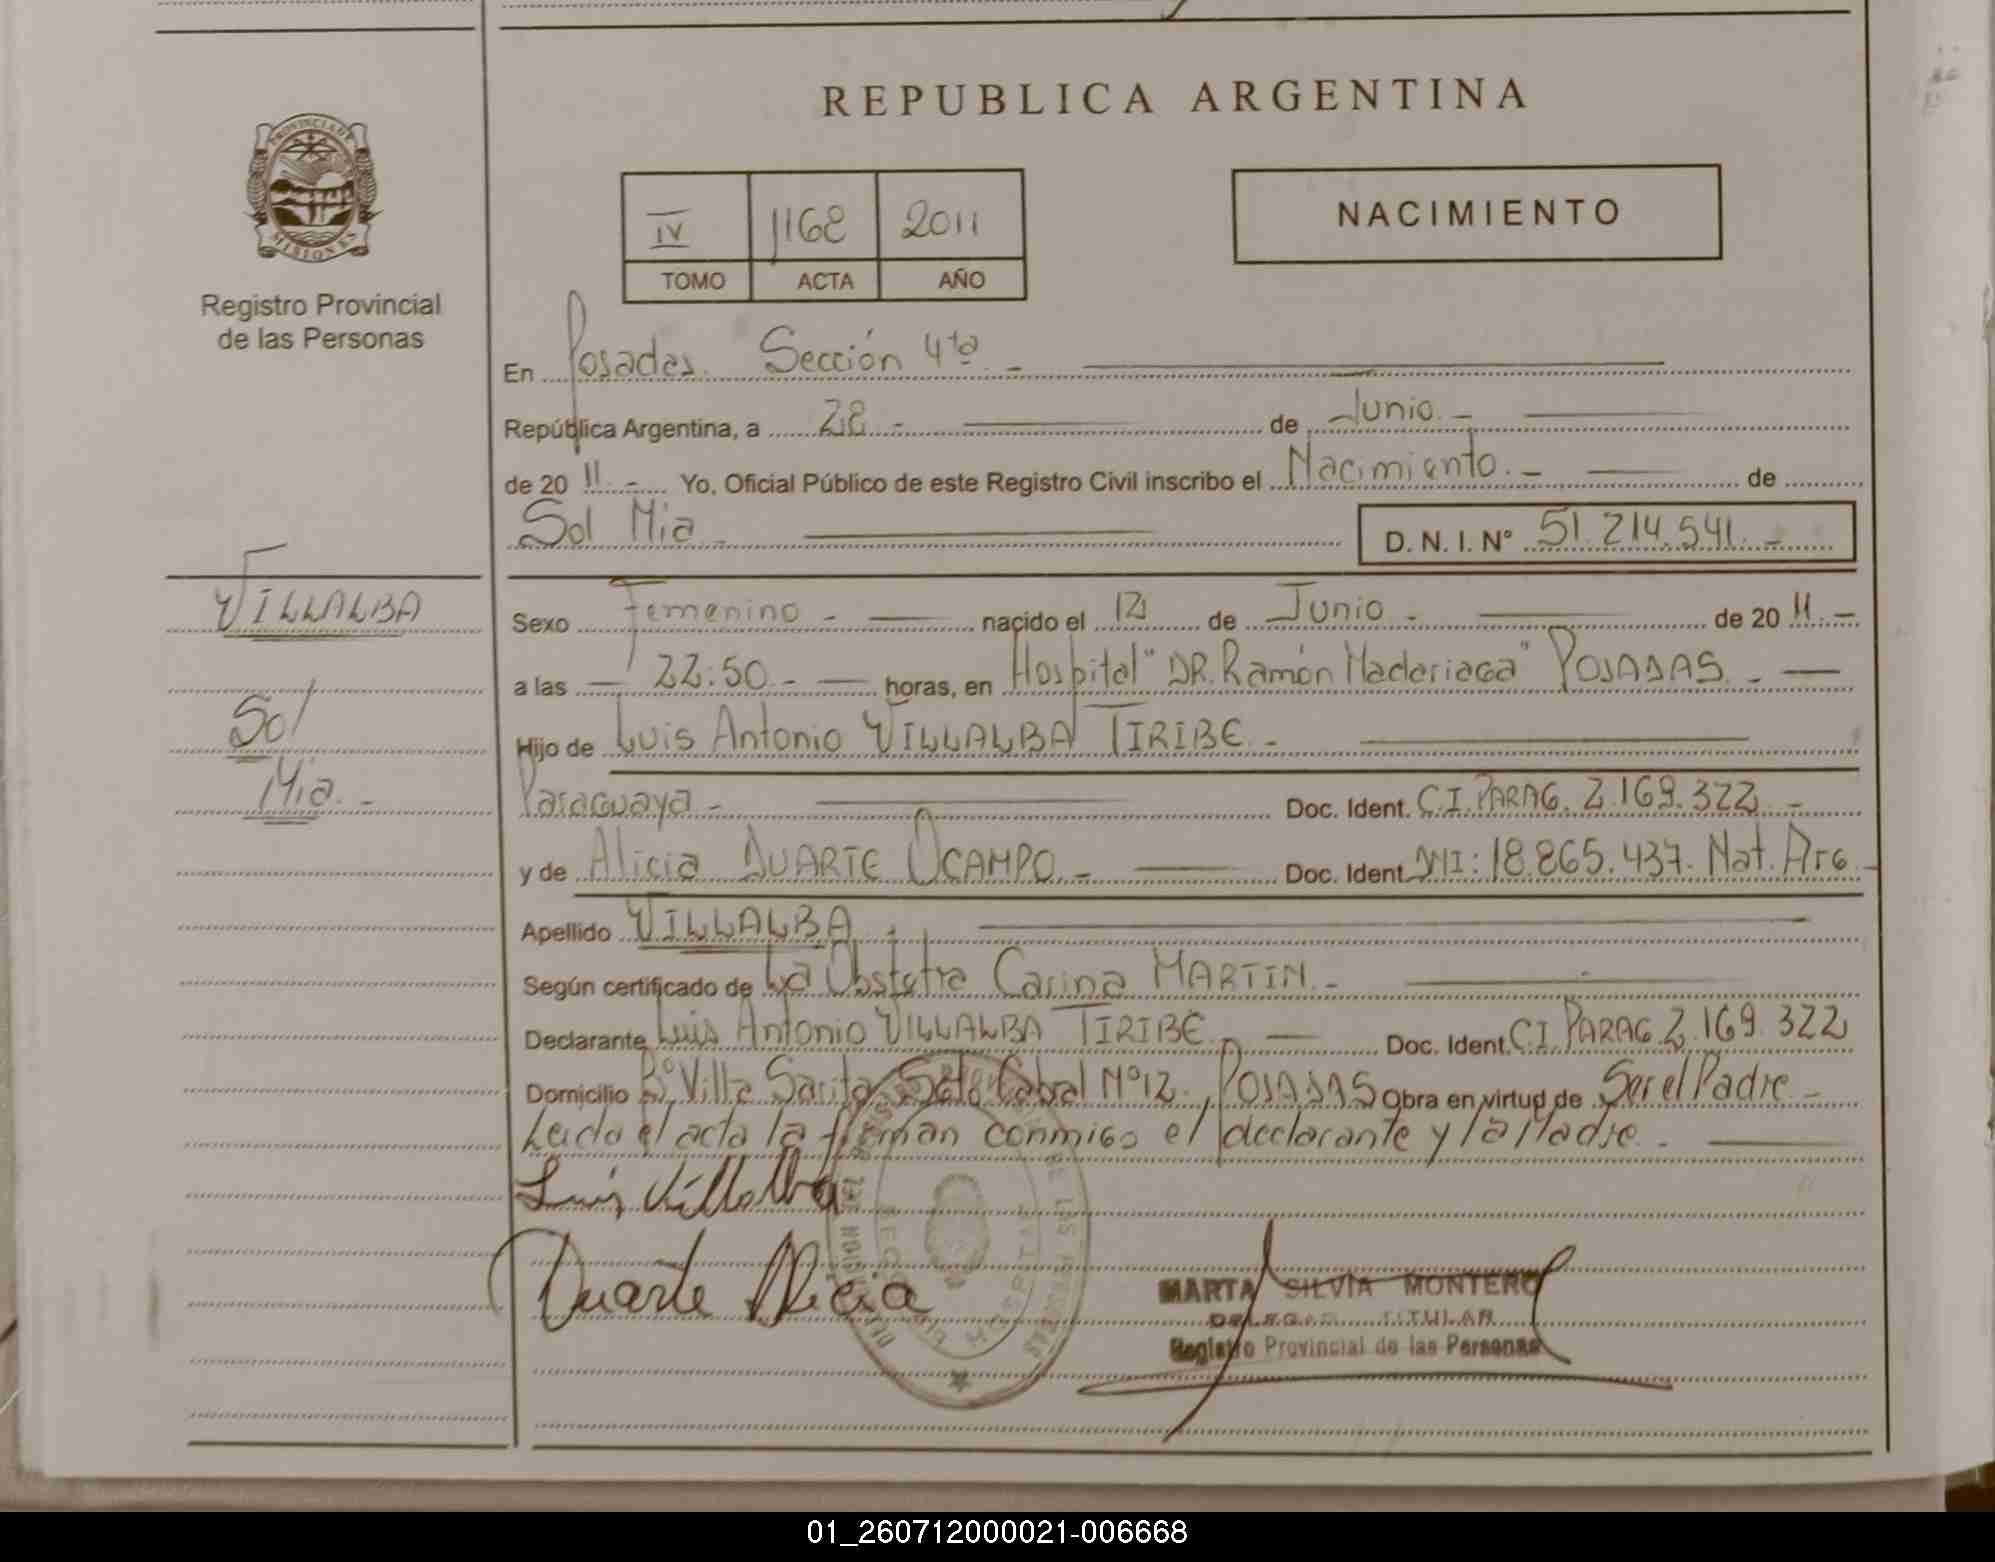 REPUBLICA ARGENTINA
PROVINCIA DE
MISIONES
Registro Provincial
de las Personas
IV 1168 2011
TOMO ACTA AÑO
NACIMIENTO
En Posadas. Sección 4ta. -
República Argentina, a 28 - de Junio. -
de 20 11. - Yo, Oficial Público de este Registro Civil inscribo el Nacimiento. - de
Sol Mia - D. N. I. N° 51.214.541. -
VILLALBA
Sol
Mia. -
Sexo Femenino - nacido el 12 de Junio - de 20 11. -
a las - 22:50. - horas, en Hospital "DR. Ramón Madariaga" POSADAS. -
Hijo de Luis Antonio VILLALBA TIRIBE. -
Paraguaya - Doc. Ident. C.I. PARAG. 2.169.322. -
y de Alicia DUARTE OCAMPO. - Doc. Ident. DNI: 18.865.437. Nat. Arg. -
Apellido VILLALBA. -
Según certificado de La Obstetra Carina MARTIN. -
Declarante Luis Antonio VILLALBA TIRIBE. - Doc. Ident. C.I. PARAG 2.169.322
Domicilio B° Villa Sarita, Soto Cabral N° 12, POSADAS Obra en virtud de Ser el Padre. -
Leida el acta la firman conmigo el declarante y la Madre. -
Luis Villalba
Duarte Alicia
MARTA SILVIA MONTERO
DELEGADA TITULAR
Registro Provincial de las Personas
01_260712000021-006668